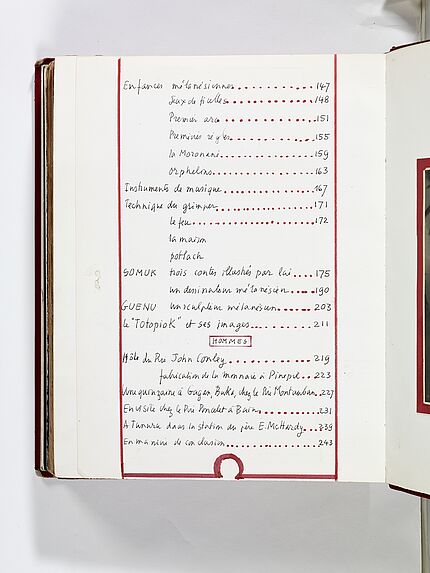 Enfances mélanésiennes 147
Jeux de ficelles 148
Premier arc 151
Premières règles 155
la Moronané 159
Orphelins 163
Instruments de musique 167
Technique du grimper 171
le feu 172
la maison
potlach
SOMUK trois contes illustrés par lui 175
un dessinateur mélanésien 190
GUENU un sculpteur mélanésien 203
le "Totopiok" et ses images 211
HOMMES
Hôte du Père John Conley 219
fabrication de la monnaie à Pinepel 223
Une quinzaine à Gagan, Buka, chez le Père Montauban 227
En visite chez le Père Poncelet à Buin 231
A Tunuru dans la station du père E. McHardy 239
En manière de conclusion 243